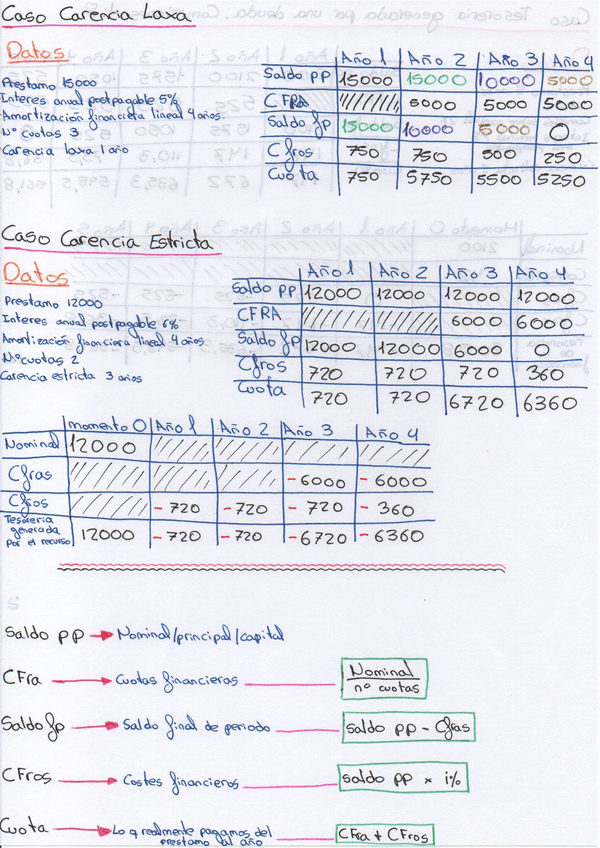 Caso Carencia Laxa
Datos
Prestamo 15000
Interes anual postpagable 5%
Amortización financiera lineal 4 años.
Nº cuotas 3
Carencia laxa 1 año
Año 1 Año 2 Año 3 Año 4
Saldo pp 15000 15000 10000 5000
CFRA 5000 5000 5000
Saldo fp 15000 10000 5000 0
Cfros 750 750 500 250
Cuota 750 5750 5500 5250
Caso Carencia Estricta
Datos
Prestamo 12000
Interes anual postpagable 6%
Amortización financiera lineal 4 años
Nº cuotas 2
Carencia estricta 3 años
Año 1 Año 2 Año 3 Año 4
Saldo pp 12000 12000 12000 12000
CFRA 6000 6000
Saldo fp 12000 12000 6000 0
Cfros 720 720 720 360
Cuota 720 720 6720 6360
momento 0 Año 1 Año 2 Año 3 Año 4
Nominal 12000
Cfras -6000 -6000
Cfros -720 -720 -720 -360
Tesoreria
generada
por el recurso 12000 -720 -720 -6720 -6360
Saldo pp → Nominal/principal/capital
CFra → Cuotas financieras Nominal
nº cuotas
Saldo fp → Saldo final de periodo saldo pp - Cfras
CFros → Costes financieros saldo pp x i%
Cuota → Lo q realmente pagamos del
prestamo al año CFra + CFros